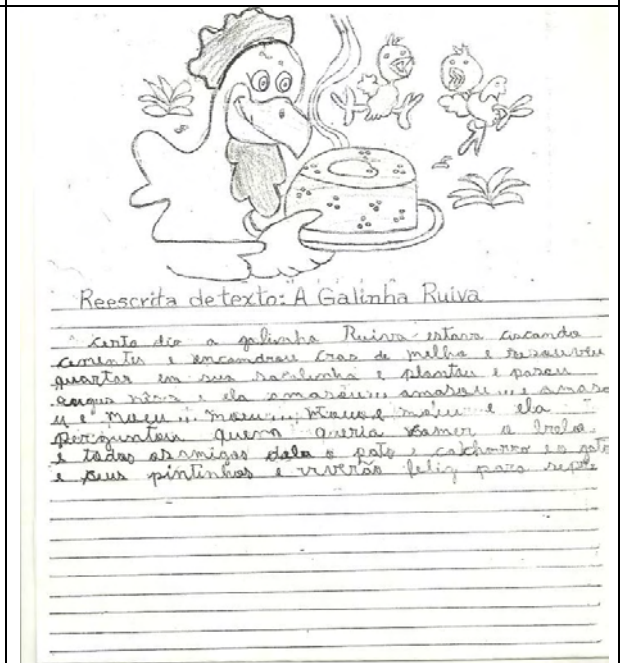 Reescrita de texto: A Galinha Ruiva
Certo dia a galinha Ruiva estava ciscando
cimentis e encomdrou cras de milho e resouveu
quartar em sua sacolinha e plantou e pasou
augus mêses e ela amasou... amasou... e amaso
u e moeu... moeu... moeu e moeu e ela
perguntou quem queria comer o bolo
e todos os amigos dela o pato e cakhorro e o gato
e seus pintinhos e viverão feliz para sepre